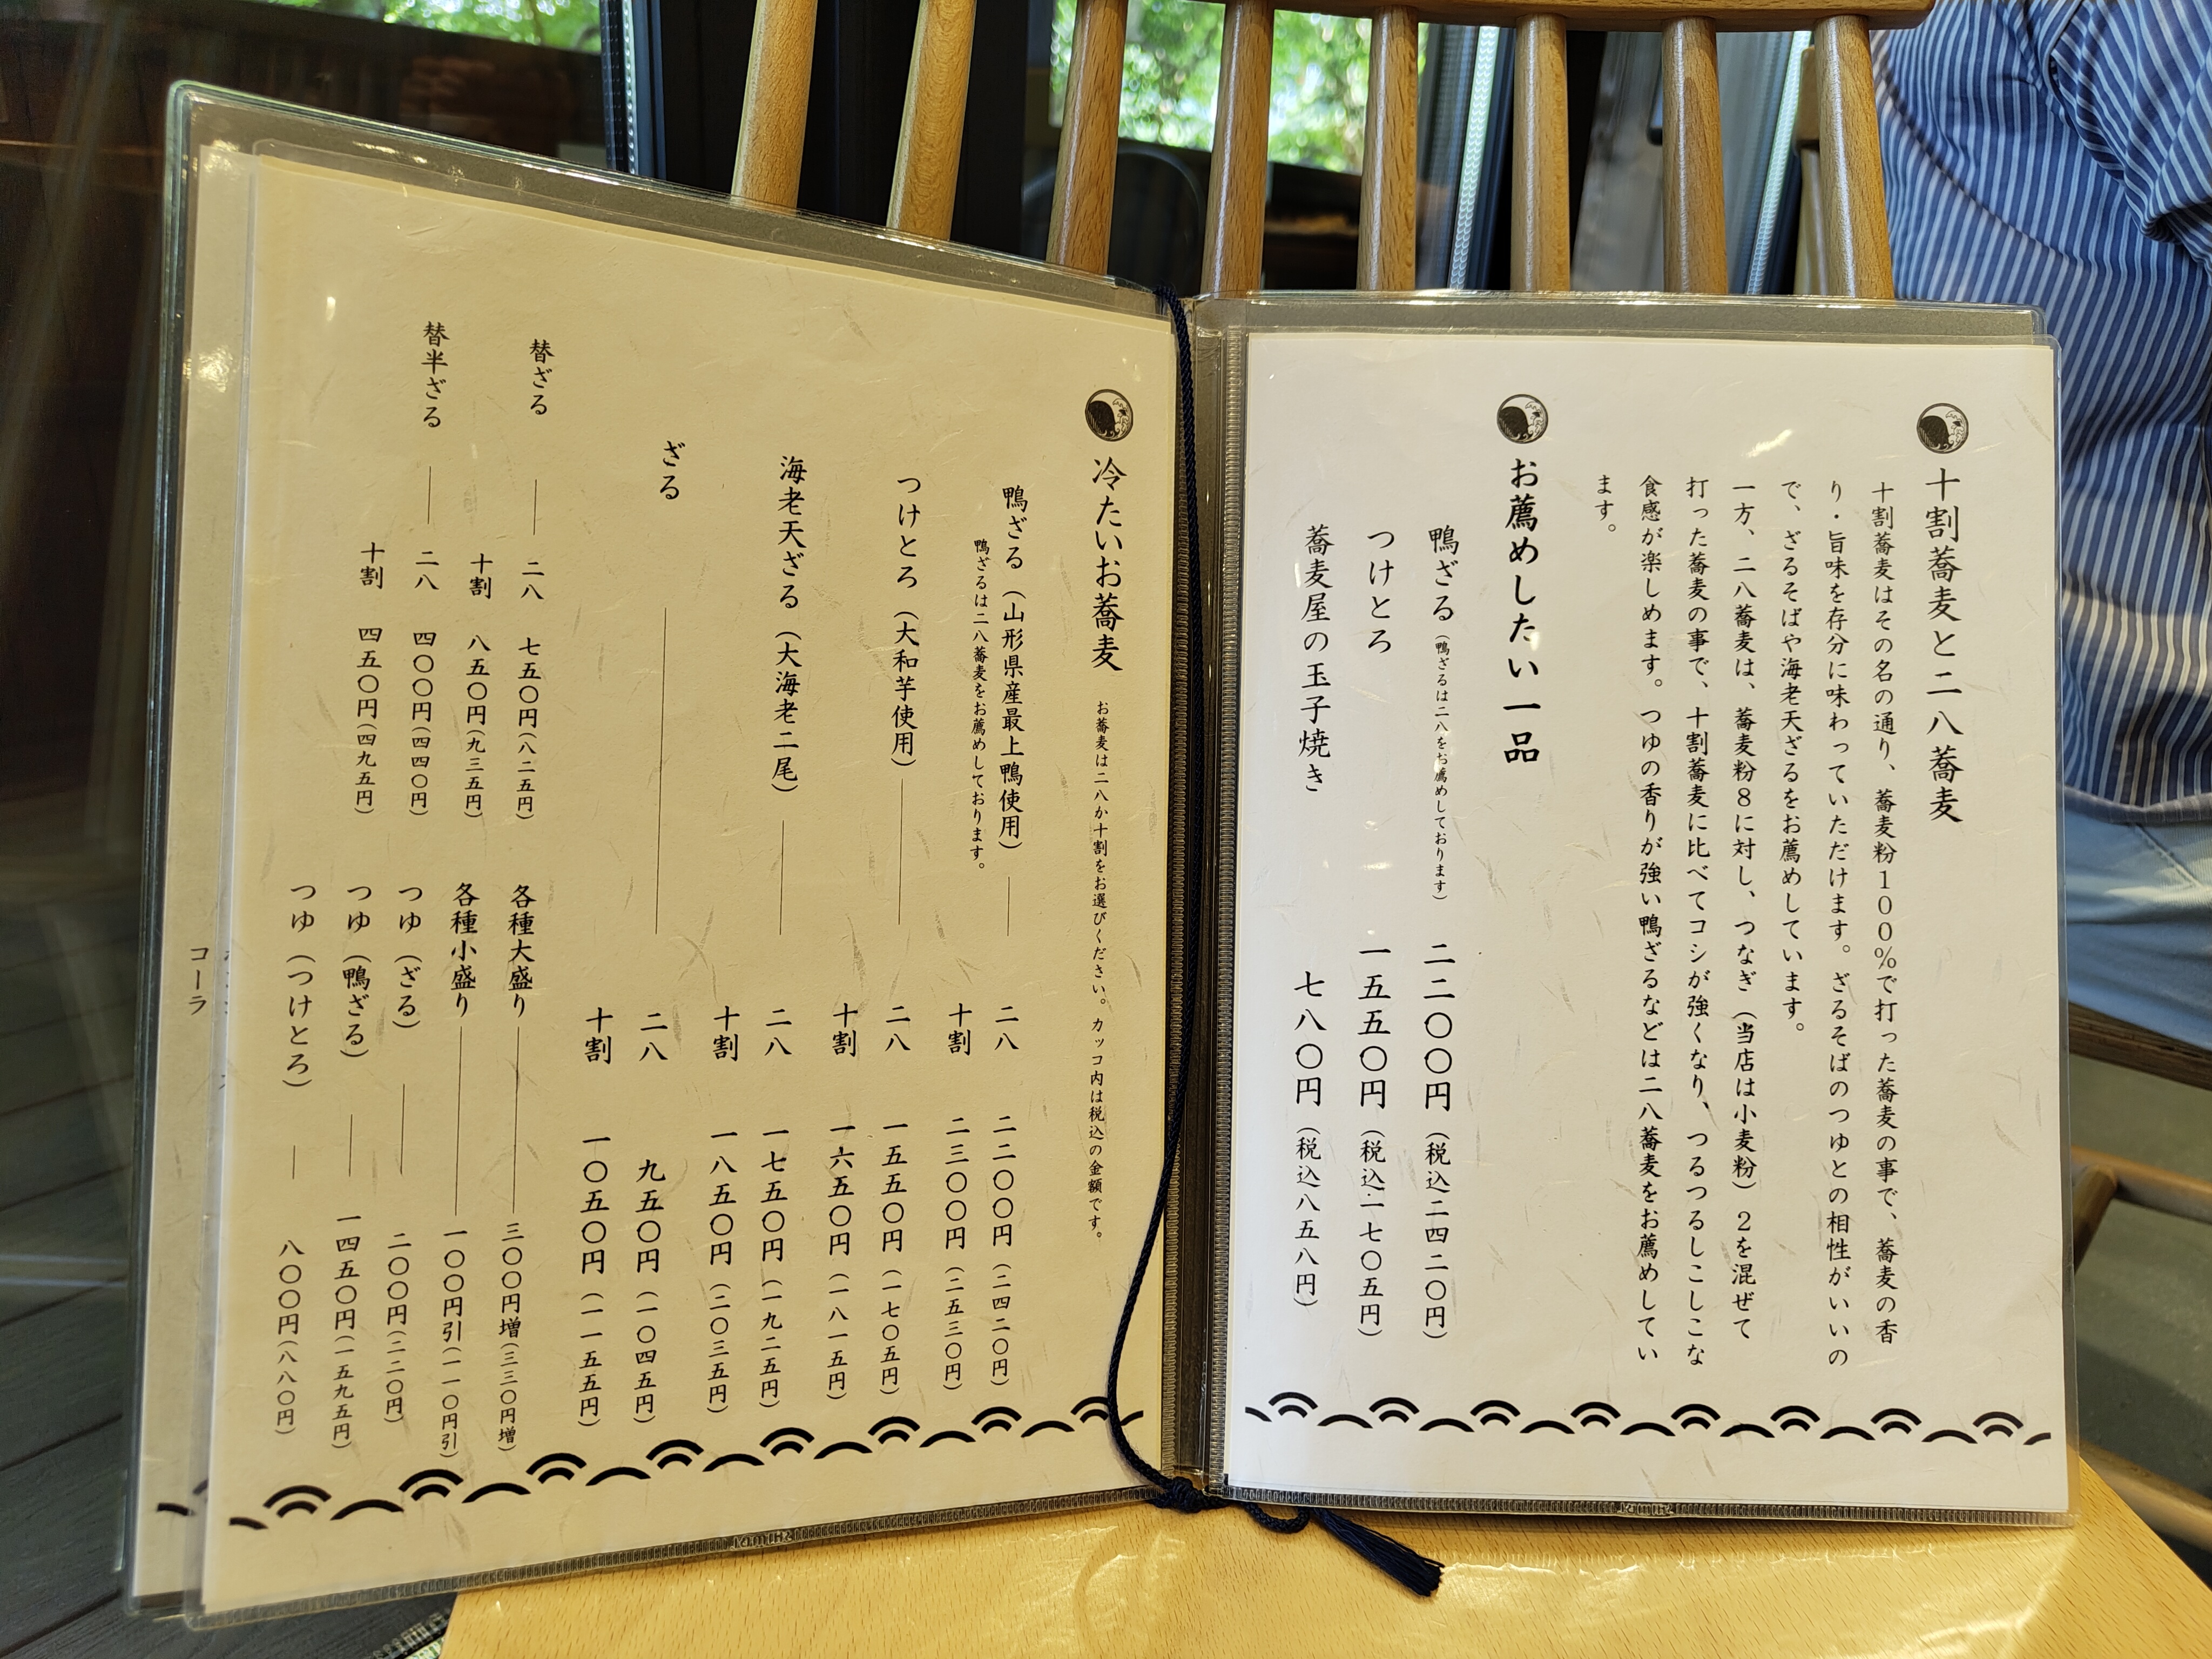 十割蕎麦と二八蕎麦
十割蕎麦はその名の通り、蕎麦粉１００％で打った蕎麦の事で、蕎麦の香
り・旨味を存分に味わっていただけます。ざるそばのつゆとの相性がいいの
で、ざるそばや海老天ざるをお薦めしています。
一方、二八蕎麦は、蕎麦粉８に対し、つなぎ（当店は小麦粉）２を混ぜて
打った蕎麦の事で、十割蕎麦に比べてコシが強くなり、つるつるしこしこな
食感が楽しめます。つゆの香りが強い鴨ざるなどは二八蕎麦をお薦めしてい
ます。
お薦めしたい一品
鴨ざる（鴨ざるは二八をお薦めしております） 二二〇〇円（税込二四二〇円）
つけとろ 一五五〇円（税込一七〇五円）
蕎麦屋の玉子焼き 七八〇円（税込八五八円）
冷たいお蕎麦 お蕎麦は二八か十割をお選びください。カッコ内は税込の金額です。
鴨ざる（山形県産最上鴨使用） 二八 二二〇〇円（二四二〇円）
鴨ざるは二八蕎麦をお薦めしております。
十割 二三〇〇円（二五三〇円）
つけとろ（大和芋使用） 二八 一五五〇円（一七〇五円）
十割 一六五〇円（一八一五円）
海老天ざる（大海老二尾） 二八 一七五〇円（一九二五円）
十割 一八五〇円（二〇三五円）
ざる 二八 九五〇円（一〇四五円）
十割 一〇五〇円（一一五五円）
替ざる 二八 七五〇円（八二五円）
十割 八五〇円（九三五円）
替半ざる 二八 四〇〇円（四四〇円）
十割 四五〇円（四九五円）
各種大盛り 三〇〇円増（三三〇円増）
各種小盛り 一〇〇円引（一一〇円引）
つゆ（ざる） 二〇〇円（二二〇円）
つゆ（鴨ざる） 一四五〇円（一五九五円）
つゆ（つけとろ） 八〇〇円（八八〇円）
コーラ